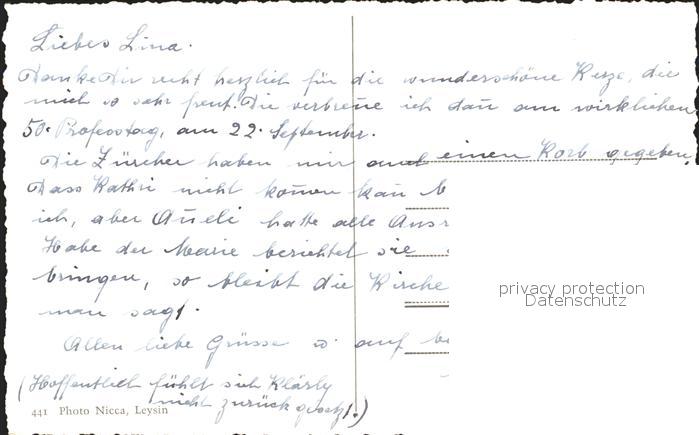 Liebes Lina.
Danke Dir recht herzlich für die wunderschöne Kerze, die
mich so sehr freut. Die verbreñe ich dañ am wirklichen
50. Professtag, am 22. September.
Die Zürcher haben mir auch einen Korb gegeben,
Dass Kathri nicht kom̄en kañ b
ich, aber Añeli hatte alle Ausr
Habe der Marie berichtet sie
bringen, so bleibt die Kirche
man sagt.
Allen liebe Grüsse u. auf
(Hoffentlich fühlt sich Klärly
nicht zurück gesetzt.)
441 Photo Nicca, Leysin
privacy protection
Datenschutz